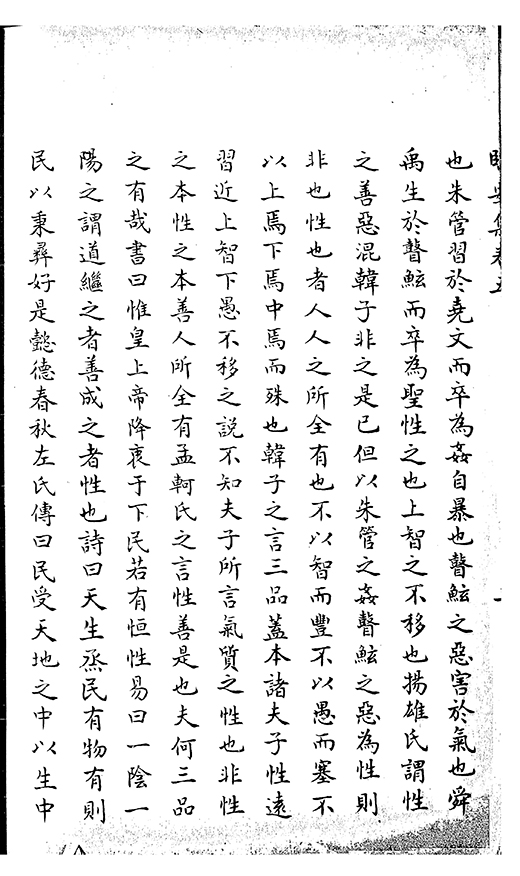 也朱管習於堯文而卒為姦自暴也瞽鯀之惡害於氣也舜
禹生於瞽鯀而卒為聖性之也上智之不移也揚雄氏謂性
之善惡混韓子非之是已但以朱管之姦瞽鯀之惡為性則
非也性也者人人之所全有也不以智而豐不以愚而塞不
以上焉下焉中焉而殊也韓子之言三品蓋本諸夫子性遠
習近上智下愚不移之說不知夫子所言氣質之性也非性
之本性之本善人所全有孟軻氏之言性善是也夫何三品
之有哉書曰惟皇上帝降衷于下民若有恒性易曰一陰一
陽之謂道繼之者善成之者性也詩曰天生烝民有物有則
民以秉彝好是懿德春秋左氏傳曰民受天地之中以生中